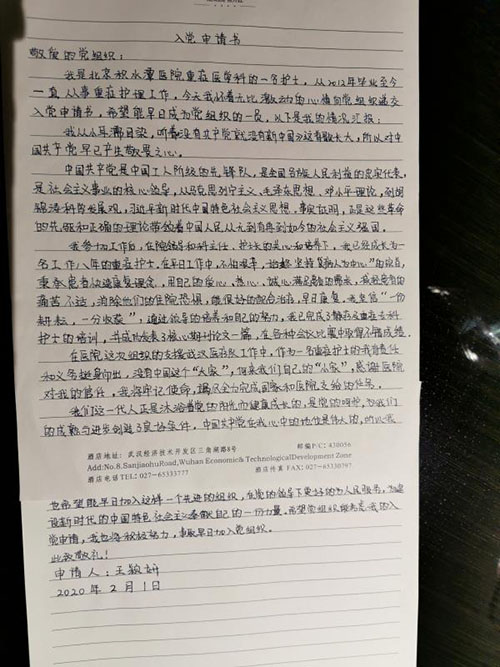 入党申请书
敬爱的党组织：
我是北京积水潭医院重症医学科的一名护士，从2012年毕业至今
一直从事重症护理工作，今天我怀着无比激动的心情向党组织递交
入党申请书，希望能早日成为党组织的一员，以下是我的情况汇报：
我从小耳濡目染，听着没有共产党就没有新中国这首歌长大，所以对中
国共产党早已产生敬畏之心。
中国共产党是中国工人阶级的先锋队，是全国各族人民利益的忠实代表，
是社会主义事业的核心领导，从马克思列宁主义、毛泽东思想、邓小平理论，到胡
锦涛科学发展观，习近平新时代中国特色社会主义思想，事实证明，正是这些革命
的先驱和正确的理论带领着中国人民从无到有再到如今的社会主义强国。
我参加工作后，在院领导和科主任、护士长的关心和培养下，我已经成长为一
名工作八年的重症护士，在平日工作中，不怕艰辛，始终坚持“病人为中心”的
患者早日康复理念，用自己的爱心、热心、诚心满足患者的需求，
痛苦不适，消除他们的住院恐惧，能很好的配合治疗，早日康复。我坚信“一份
耕耘，一分收获”，通过领导的培养和自己的努力，我已完成了静疗及重症专科
护士的培训，并成功发表了核心期刊论文一篇，在各种会议比赛中取得不错成绩。
在医院这次组织的支援武汉医疗队工作中，作为一名重症护士的我有责任
和义务挺身而出，没有中国这个“大家”，何来我们自己的“小家”，感谢医院
对我的信任，我将牢记使命，竭尽全力完成国家和医院交给的任务。
我们这一代人正是沐浴着党的阳光而健康成长的，是党的呵护，为我们
的成熟与进步创造了良好条件，中国共产党在我心中的地位是伟大的，所以我
酒店地址：武汉经济技术开发区三角湖路8号 邮编P/C: 430056
Add:No.8.SanjiaohuRoad,Wuhan Economic& TechnologicalDevelopment Zone
酒店电话TEL：027-65333777 酒店传真 FAX：027-65330797
也希望能早日加入这样一个先进的组织，在党的领导下更好的为人民服务，为建
设新时代的中国特色社会主义奉献自己的一份力量。希望党组织能考虑我的入
党申请，我也将积极努力，争取早日加入党组织。
此致敬礼！
申请人：王颖
2020年2月1日